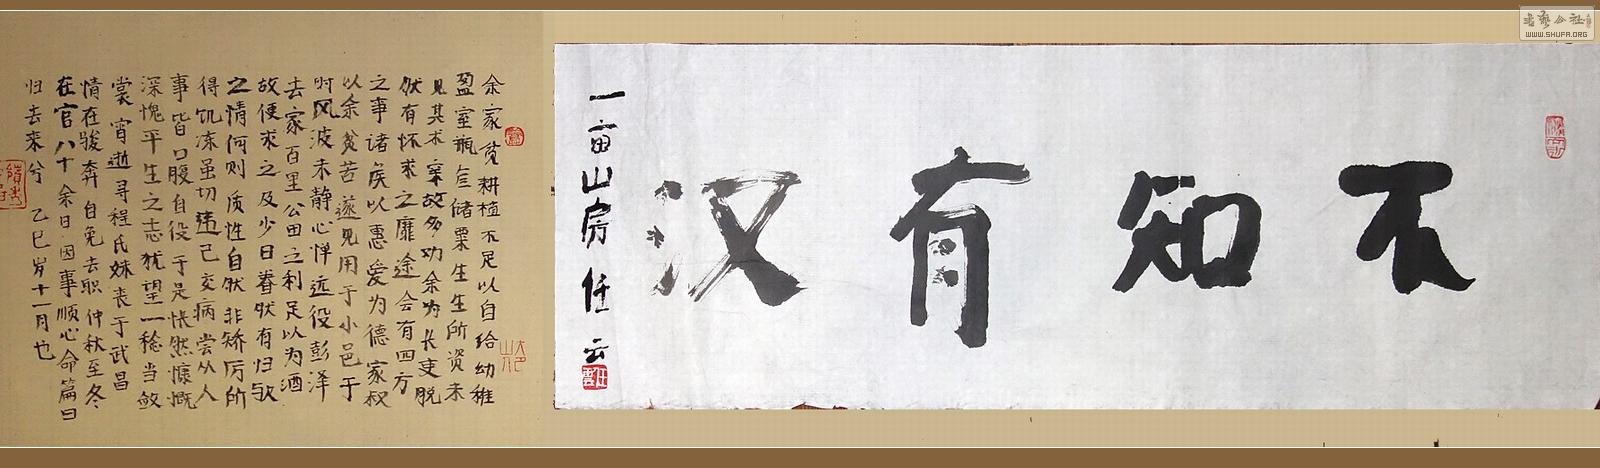 书艺公社
WWW.SHUFA.ORG
不知有汉
一亩山房 任云
余家贫耕植不足以自给幼稚
盈室瓶无储粟生生所资未
见其术亲故多劝余为长吏脱
然有怀求之靡途会有四方
之事诸侯以惠爱为德家叔
以余贫苦遂见用于小邑于
时风波未静心惮远役彭泽
去家百里公田之利足以为酒
故便求之及少日眷然有归欤
之情何则质性自然非矫厉所
得饥冻虽切违己交病尝从人
事皆口腹自役于是怅然慷慨
深愧平生之志犹望一稔当敛
裳宵逝寻程氏妹丧于武昌
情在骏奔自免去职仲秋至冬
在官八十余日因事顺心命篇曰
归去来兮 乙巳岁十一月也